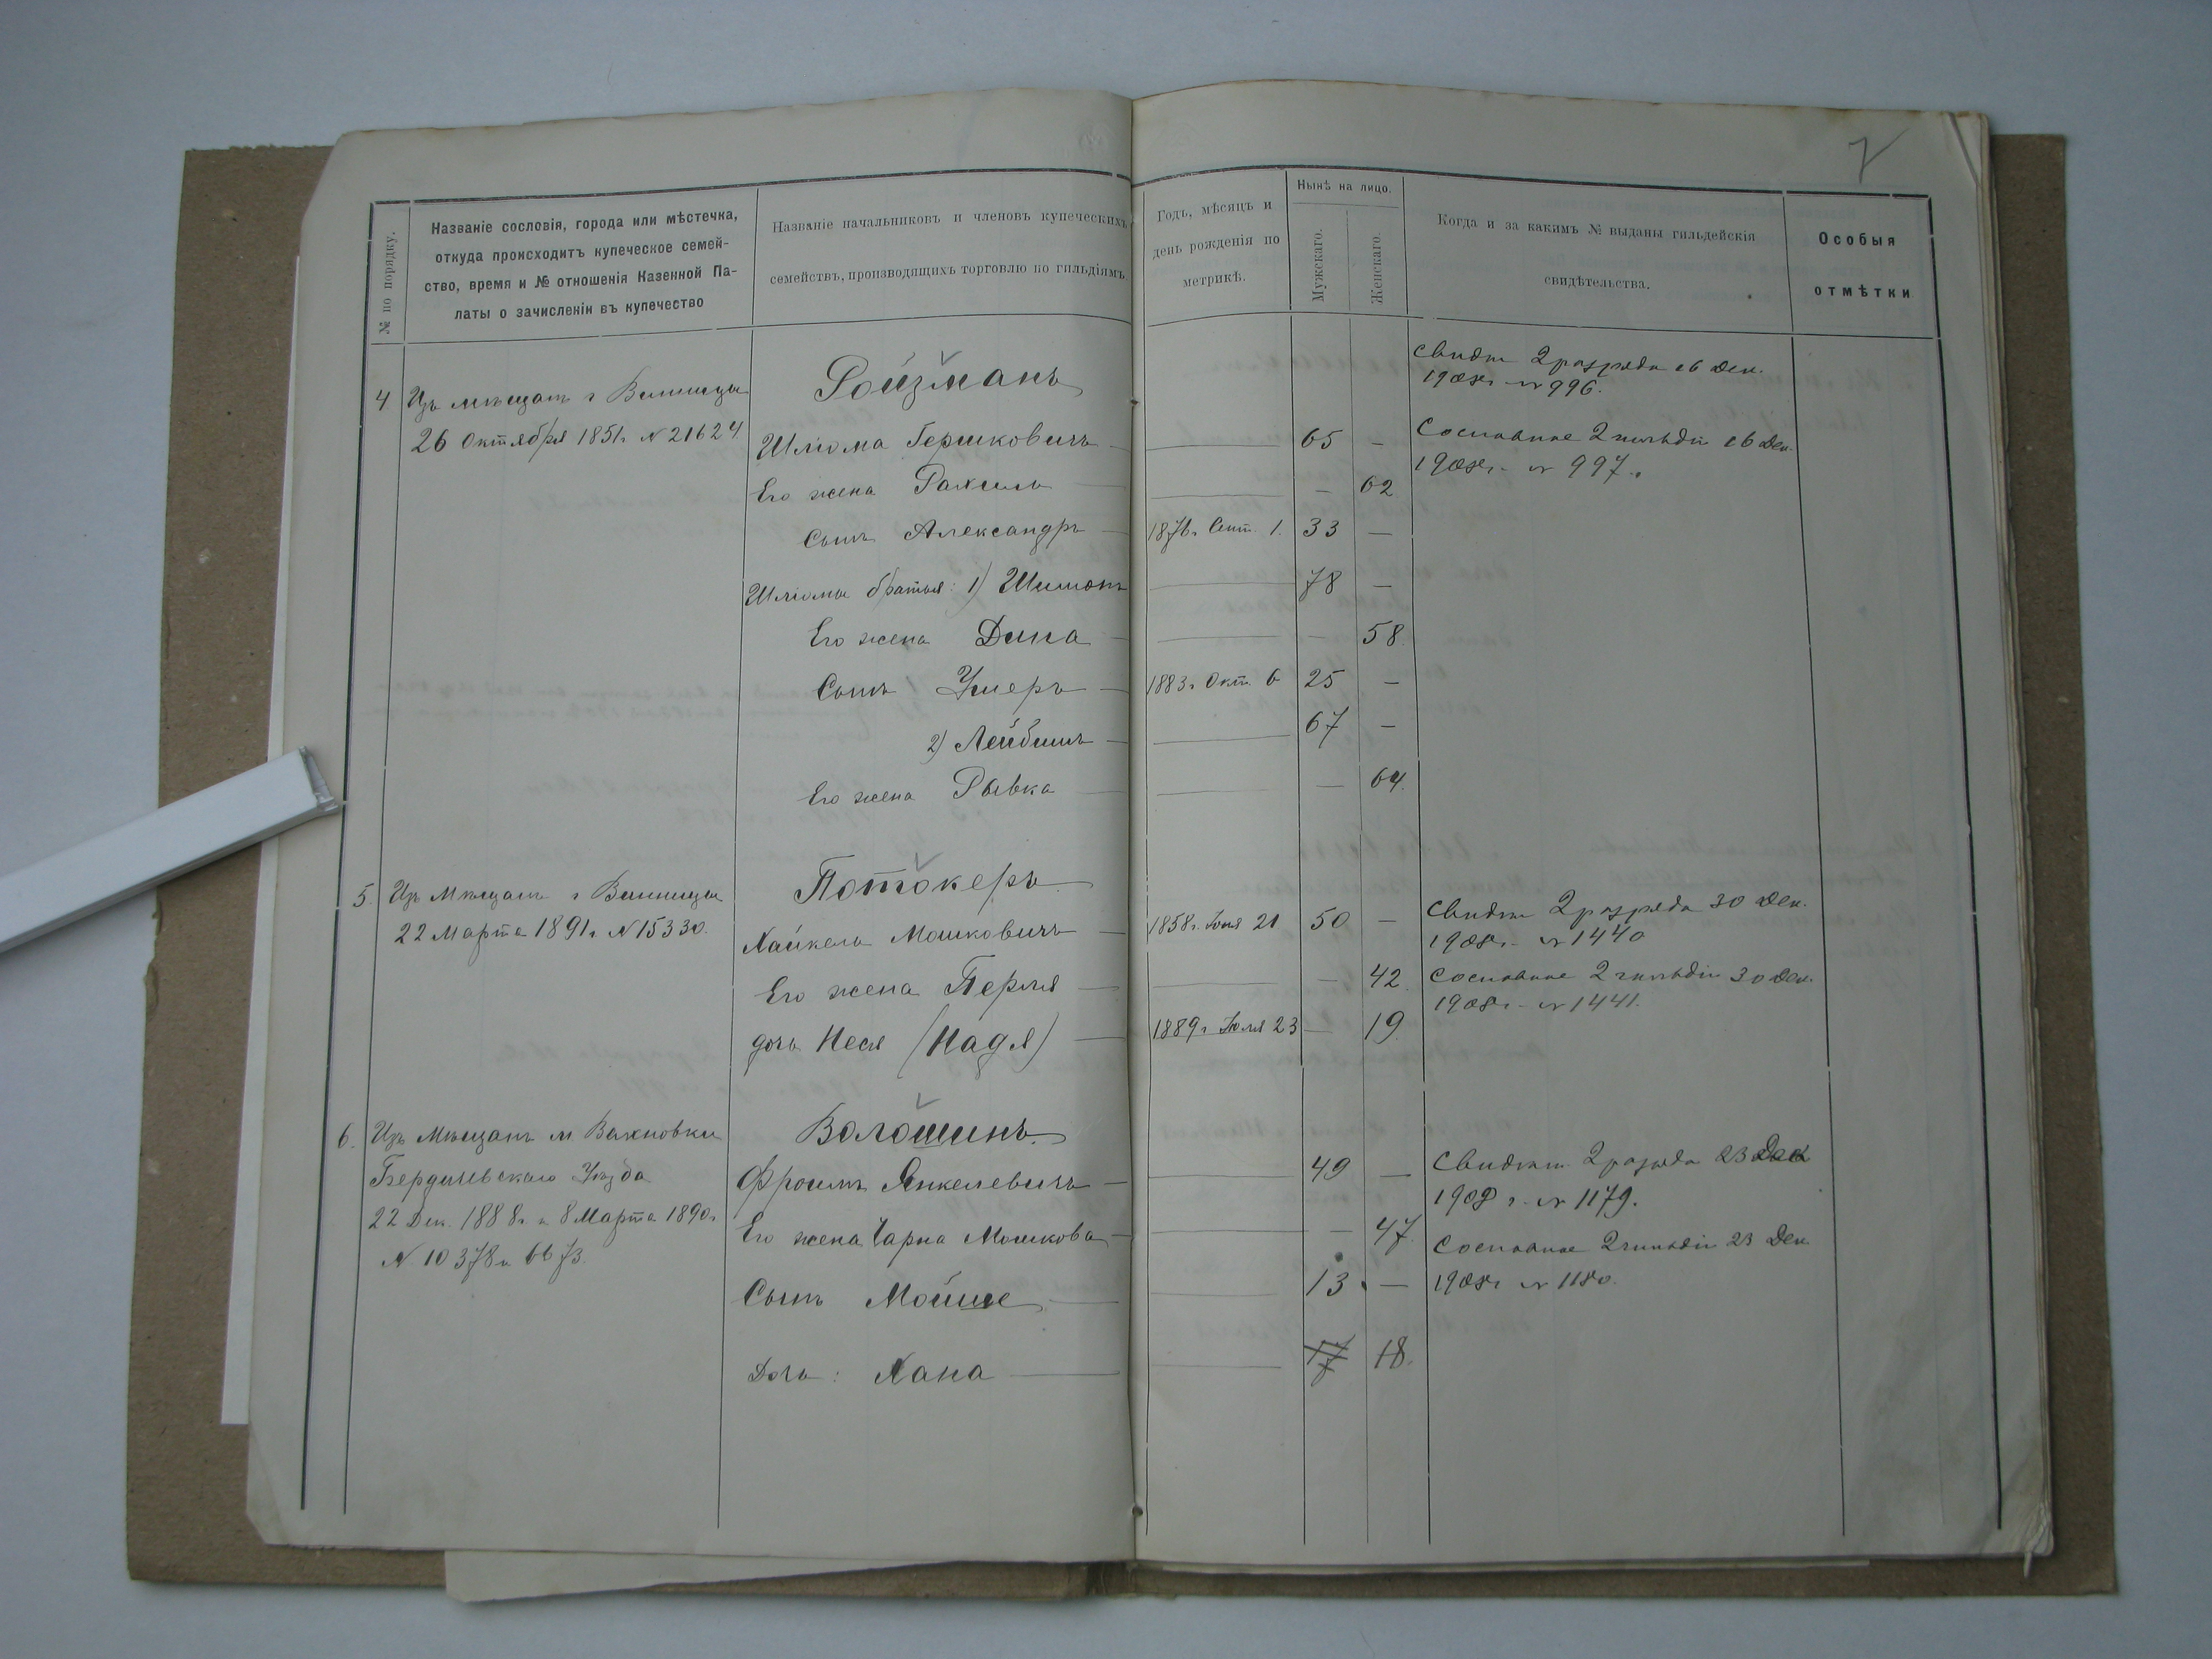 7
№ по порядку.
Названіе сословія, города или мѣстечка,
откуда происходитъ купеческое семей-
ство, время и № отношенія Казенной Па-
латы о зачисленіи въ купечество
Названіе начальниковъ и членовъ купеческихъ
семействъ, производящихъ торговлю по гильдіямъ
Годъ, мѣсяцъ и
день рожденія по
метрикѣ.
Нынѣ на лицо.
Мужскаго.
Женскаго.
Когда и за какимъ № выданы гильдейскія
свидѣтельства.
Особыя
отмѣтки
4. Изъ мѣщанъ г Винницы
26 Октября 1851г. № 21624
Ройзманъ
Шліома Гершковичъ 65 —
Его жена Рахиль — 62
Сынъ Александръ 1876г. Сент. 1. 33 —
Шліомы братья: 1) Шимонъ 78 —
Его жена Дина — 58.
Сынъ Ушеръ 1883г. Окт. 6 25 —
2) Лейбишъ 67 —
Его жена Рывка — 64.
Свидѣт 2 разряда 16 Дек.
1908г. № 996.
Сословное 2 гильдіи 16 Дек.
1908г. № 997.
5. Изъ Мѣщанъ г Винницы
22 Марта 1891г. № 15330.
Потокеръ
Хайкель Мошковичъ 1858г. Іюля 21 50 —
Его жена Перля — 42.
дочь Неся (Надя) 1889г Іюля 23 — 19.
Свидѣт 2 разряда 30 Дек.
1908г. № 1440
Сословное 2 гильдіи 30 Дек.
1908г. № 1441.
6. Изъ Мѣщанъ м Вахновки
Бердичевскаго Уѣзда
22 Дек. 1888г. и 8 Марта 1890г.
№ 10378 и 6673.
Волошинъ.
Фроимъ Янкелевичъ 49 —
Его жена Чарна Мошкова — 47.
Сынъ Мойше 13 —
Дочь: Хана 17 18.
Свидѣт. 2 разряда 23 Дек
1908 г. № 1179.
Сословное 2 гильдіи 23 Дек.
1908г № 1180.